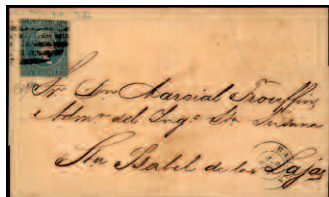 Sr Dn Marcial
Admor del Ingo Sta Susana
Sta Isabel de las Lajas